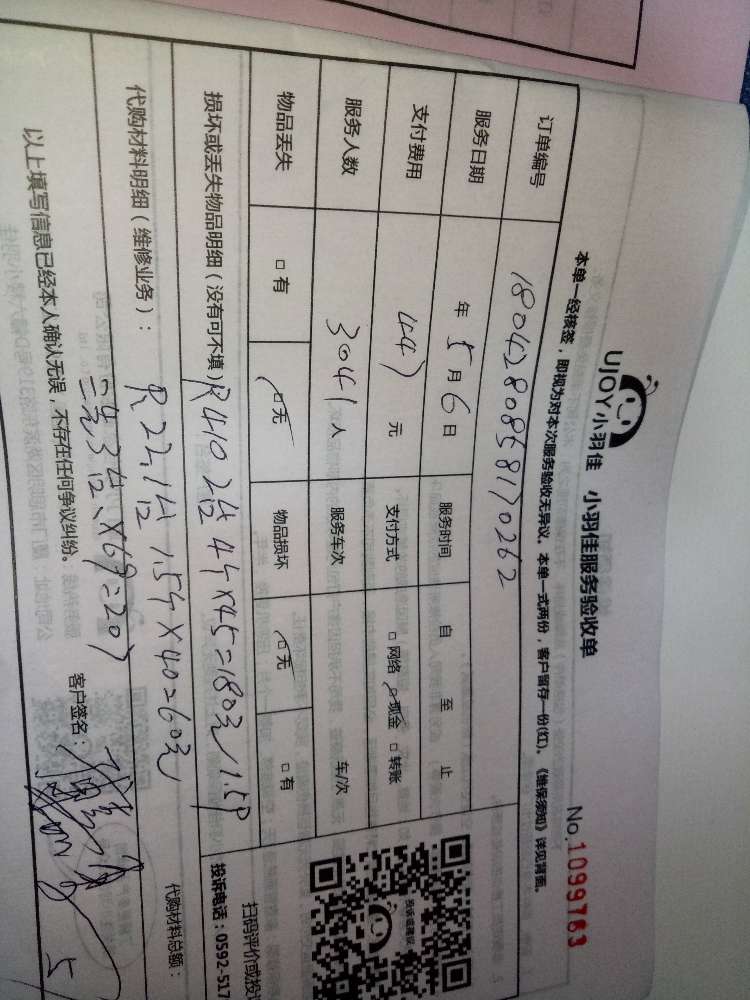 UJOY小羽佳 小羽佳服务验收单
No.1099763
本单一经核签，即视为对本次服务验收无异议。本单一式两份，客户留存一份(红)。《维保须知》详见背面。
订单编号 1804280858170262
服务日期 年 5 月 6 日 服务时间 自 至 止
支付费用 447 元 支付方式 □网络 □现金 □转账
服务人数 3041 人 服务车次 车/次
物品丢失 □有 □无 物品损坏 □无 □有
损坏或丢失物品明细（没有可不填）R410 2台 4个×45=180元 1.5P
扫码评价或投
投诉电话：0592-517
投诉或建议
代购材料明细（维修业务）： R22, 1台 1.5个×40=60元
代购材料总额：
3台 ×69=207
以上填写信息已经本人确认无误，不存在任何争议纠纷。 客户签名：